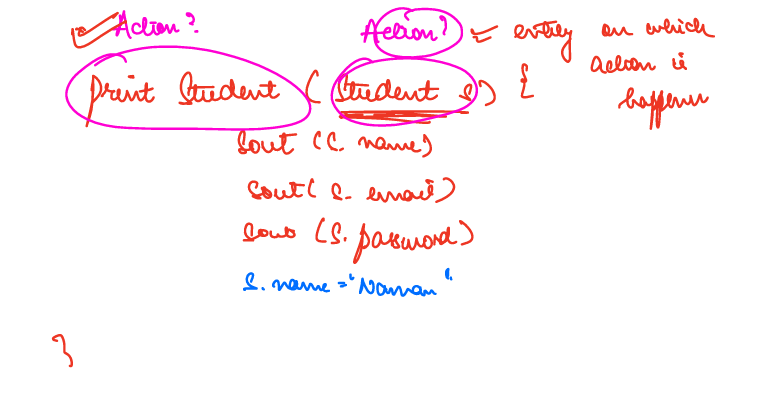 Action?
Action? entity on which
action is
happening
print Student (Student s) {
sout (s. name)
sout( s. email)
sout (s. password)
s. name = "Naman".
}